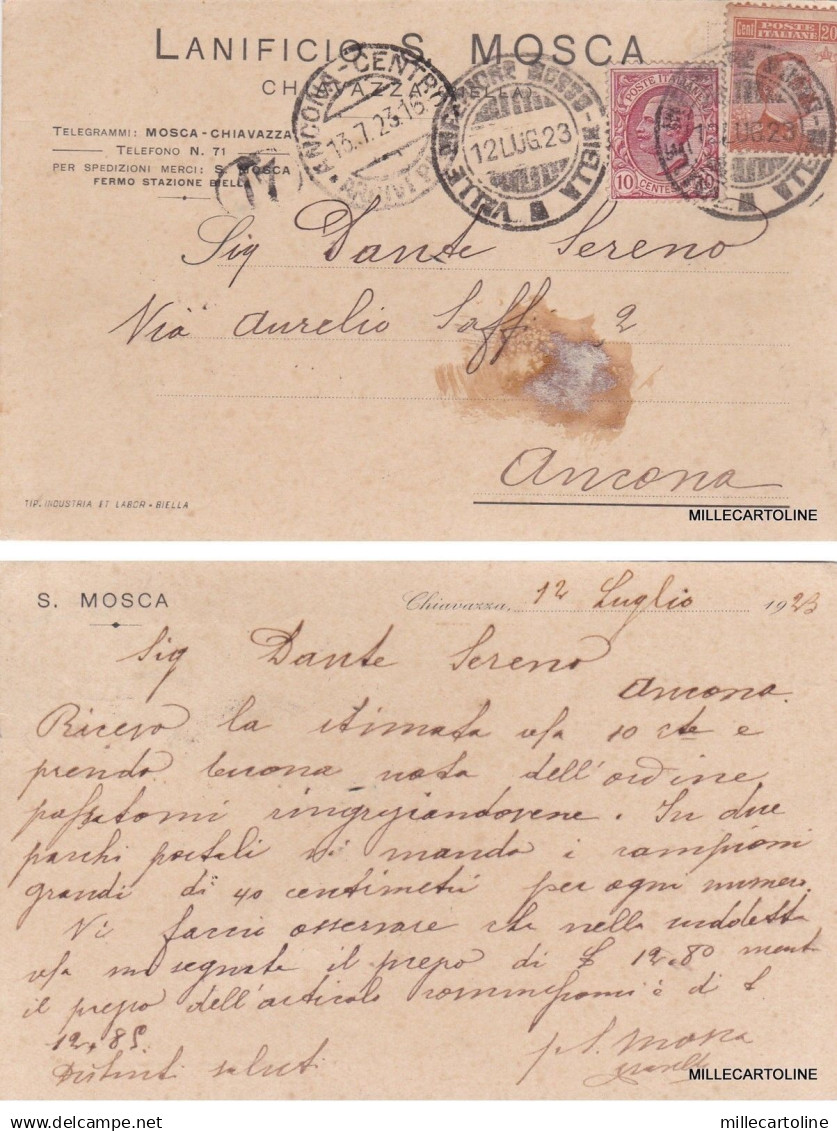 LANIFICIO S. MOSCA
CHIAVAZZA (BIELLA)
TELEGRAMMI: MOSCA-CHIAVAZZA
TELEFONO N. 71
PER SPEDIZIONI MERCI: S. MOSCA
FERMO STAZIONE BIELLA
ANCONA-CENTRO
13.7.23.16
12LUG.23
VALLE SUPERIORE MOSSO-BIELLA
POSTE ITALIANE
10 CENTES
Cent POSTE ITALIANE 20
12LUG.23
Sig Dante Sereno
Via Aurelio Saffi 2
Ancona
TIP. INDUSTRIA ET LABOR - BIELLA
MILLECARTOLINE
S. MOSCA
Chiavazza, 12 Luglio 1923
Sig Dante Sereno
Ancona.
Ricevo la stimata v/a 10 cte e
prendo buona nota dell'ordine
passatomi ringraziandovene. In due
pacchi postali vi mando i campioni
grandi di 40 centimetri per ogni numero.
Vi faccio osservare che nella suddetta
v/a segnate il prezzo di £ 12.80 ment
il prezzo dell'articolo commessomi è di £
12.85
Distinti saluti
p S. Mosca
MILLECARTOLINE
delcampe.net
millecartoline